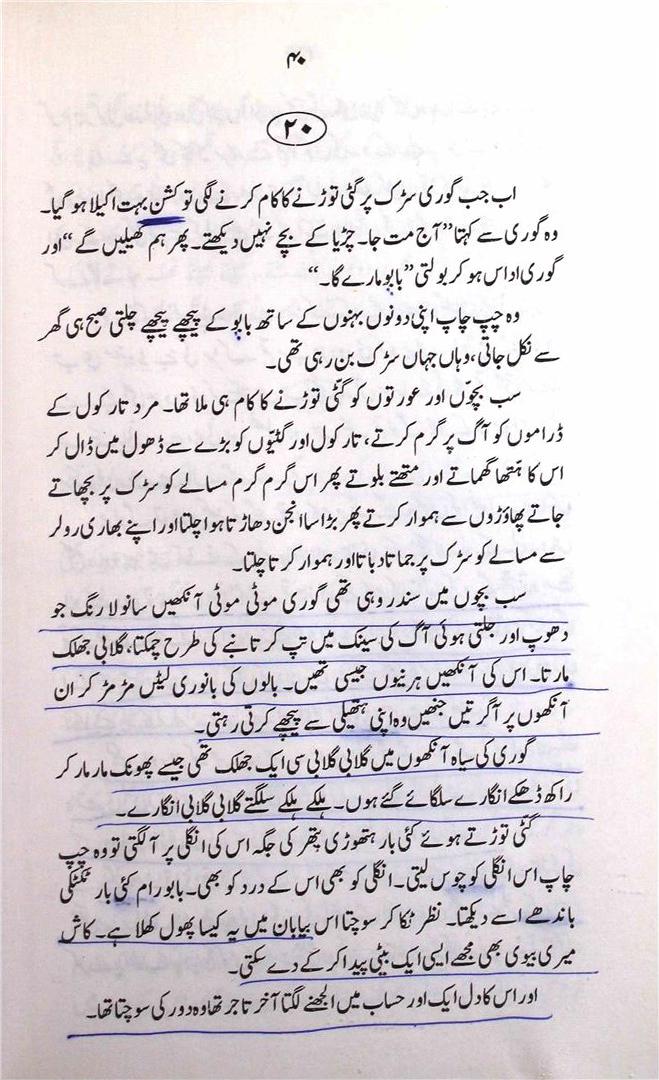 ۴۰
۲۰
اب جب گوری سڑک پر گٹی توڑنے کا کام کرنے لگی تو کشن بہت اکیلا ہو گیا۔
وہ گوری سے کہتا ”آج مت جا۔ چڑیا کے بچے نہیں دیکھتے۔ پھر ہم کھیلیں گے“ اور
گوری اداس ہو کر بولتی ”بابو مارے گا۔“
وہ چپ چاپ اپنی دونوں بہنوں کے ساتھ بابو کے پیچھے پیچھے چلتی صبح ہی گھر
سے نکل جاتی، وہاں جہاں سڑک بن رہی تھی۔
سب بچوّں اور عورتوں کو گٹی توڑنے کا کام ہی ملا تھا۔ مرد تار کول کے
ڈراموں کو آگ پر گرم کرتے، تار کول اور گٹیّوں کو بڑے سے ڈھول میں ڈال کر
اس کا ہتھا گھماتے اور متھتے بلوتے پھر اس گرم گرم مسالے کو سڑک پر بچھاتے
جاتے پھاوڑوں سے ہموار کرتے پھر بڑا سا انجن دھاڑتا ہوا چلتا اور اپنے بھاری رولر
سے مسالے کو سڑک پر جماتا دباتا اور ہموار کرتا چلتا۔
سب بچوں میں سندر وہی تھی گوری موٹی موٹی آنکھیں سانولا رنگ جو
دھوپ اور جلتی ہوئی آگ کی سینک میں تپ کر تانبے کی طرح چمکتا، گلابی جھلک
مارتا۔ اس کی آنکھیں ہرنیوں جیسی تھیں۔ بالوں کی بانوری لیٹیں مڑ مڑ کر ان
آنکھوں پر آگرتیں جنھیں وہ اپنی ہتھیلی سے پیچھے کرتی رہتی۔
گوری کی سیاہ آنکھوں میں گلابی گلابی سی ایک جھلک تھی جیسے پھونک مار مار کر
راکھ ڈھکے انگارے سلگائے گئے ہوں۔ ہلکے ہلکے سلگتے گلابی گلابی انگارے۔
گٹی توڑتے ہوئے کئی بار ہتھوڑی پتھر کی جگہ اس کی انگلی پر آلگتی تو وہ چپ
چاپ اس انگلی کو چوس لیتی۔ انگلی کو بھی اس کے درد کو بھی۔ بابو رام کئی بار ٹکٹکی
باندھے اسے دیکھتا۔ نظر ٹکا کر سوچتا اس بیابان میں یہ کیسا پھول کھلا ہے۔ کاش
میری بیوی بھی مجھے ایسی ایک بیٹی پیدا کر کے دے سکتی۔
اور اس کا دل ایک اور حساب میں الجھنے لگتا آخر تاجر تھا وہ دور کی سوچتا تھا۔